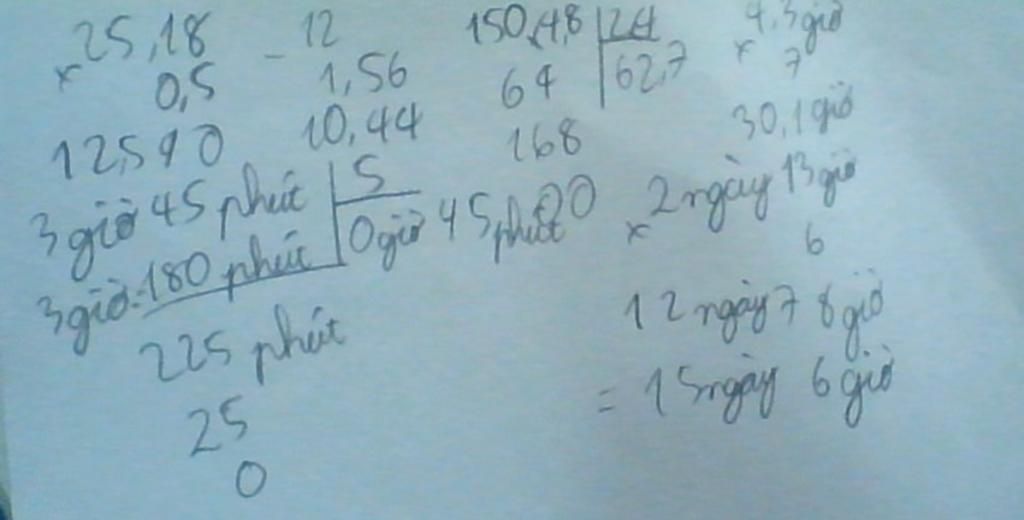 25,18
× 0,5
12,590
12
- 1,56
10,44
150,4,8 | 24
64 | 62,7
168
00
4,3 giờ
× 7
30,1 giờ
3 giờ 45 phút | 5
3 giờ = 180 phút | 0 giờ 45 phút
225 phút
25
0
2 ngày 13 giờ
× 6
12 ngày 78 giờ
= 15 ngày 6 giờ